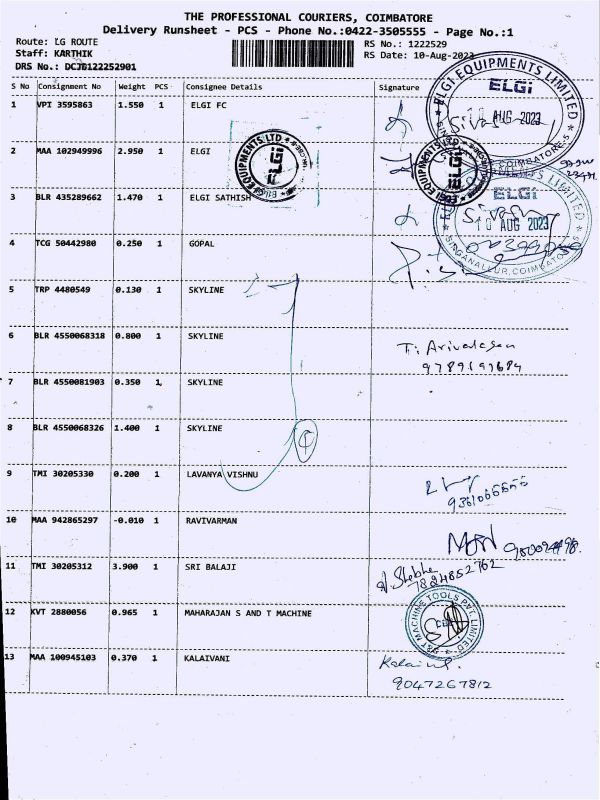 THE PROFESSIONAL COURIERS, COIMBATORE
Delivery Runsheet - PCS - Phone No.:0422-3505555 - Page No.:1
Route: LG ROUTE
RS No.: 1222529
Staff: KARTHIK
RS Date: 10-Aug-2023
DRS No.: DCJB122252901
S No Consignment No Weight PCS Consignee Details Signature
1 VPI 3595863 1.550 1 ELGI FC
ELGI EQUIPMENTS LIMITED
ELGi
AUG 2023
COIMBATORE-5
2 MAA 102949996 2.950 1 ELGI
EQUIPMENTS LTD
ELGi
EQUIPMENTS
ELGi
3 BLR 435289662 1.470 1 ELGI SATHISH
ELGi
10 AUG 2023
SINGANALLUR, COIMBATORE
4 TCG 50442980 0.250 1 GOPAL
5 TRP 4480549 0.130 1 SKYLINE
6 BLR 4550068318 0.800 1 SKYLINE
T. Arivalagan
9789191684
7 BLR 4550081903 0.350 1 SKYLINE
8 BLR 4550068326 1.400 1 SKYLINE
9 TMI 30205330 0.200 1 LAVANYA VISHNU
10 MAA 942865297 -0.010 1 RAVIVARMAN
11 TMI 30205312 3.900 1 SRI BALAJI
7884852762
12 KVT 2880056 0.965 1 MAHARAJAN S AND T MACHINE
S&T MACHINE TOOLS PVT. LIMITED
13 MAA 100945103 0.370 1 KALAIVANI
9047267812